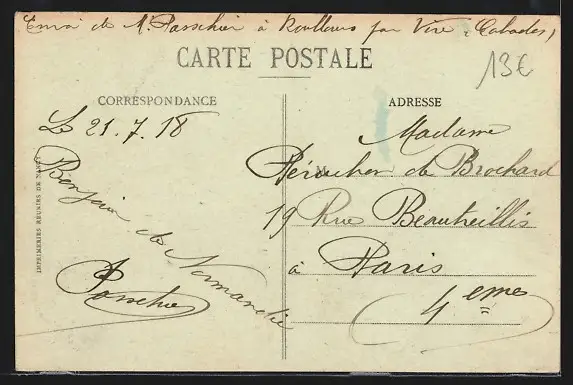 Envoi de Mr Passchier à Roullours par Vire (Calvados)
CARTE POSTALE
13€
CORRESPONDANCE
Le 21.7.18
Bonjour de Normandie
Passchier
ADRESSE
Madame
de Brochard
19 Rue Beautreillis
à Paris
4eme
IMPRIMERIES RÉUNIES DE NANCY